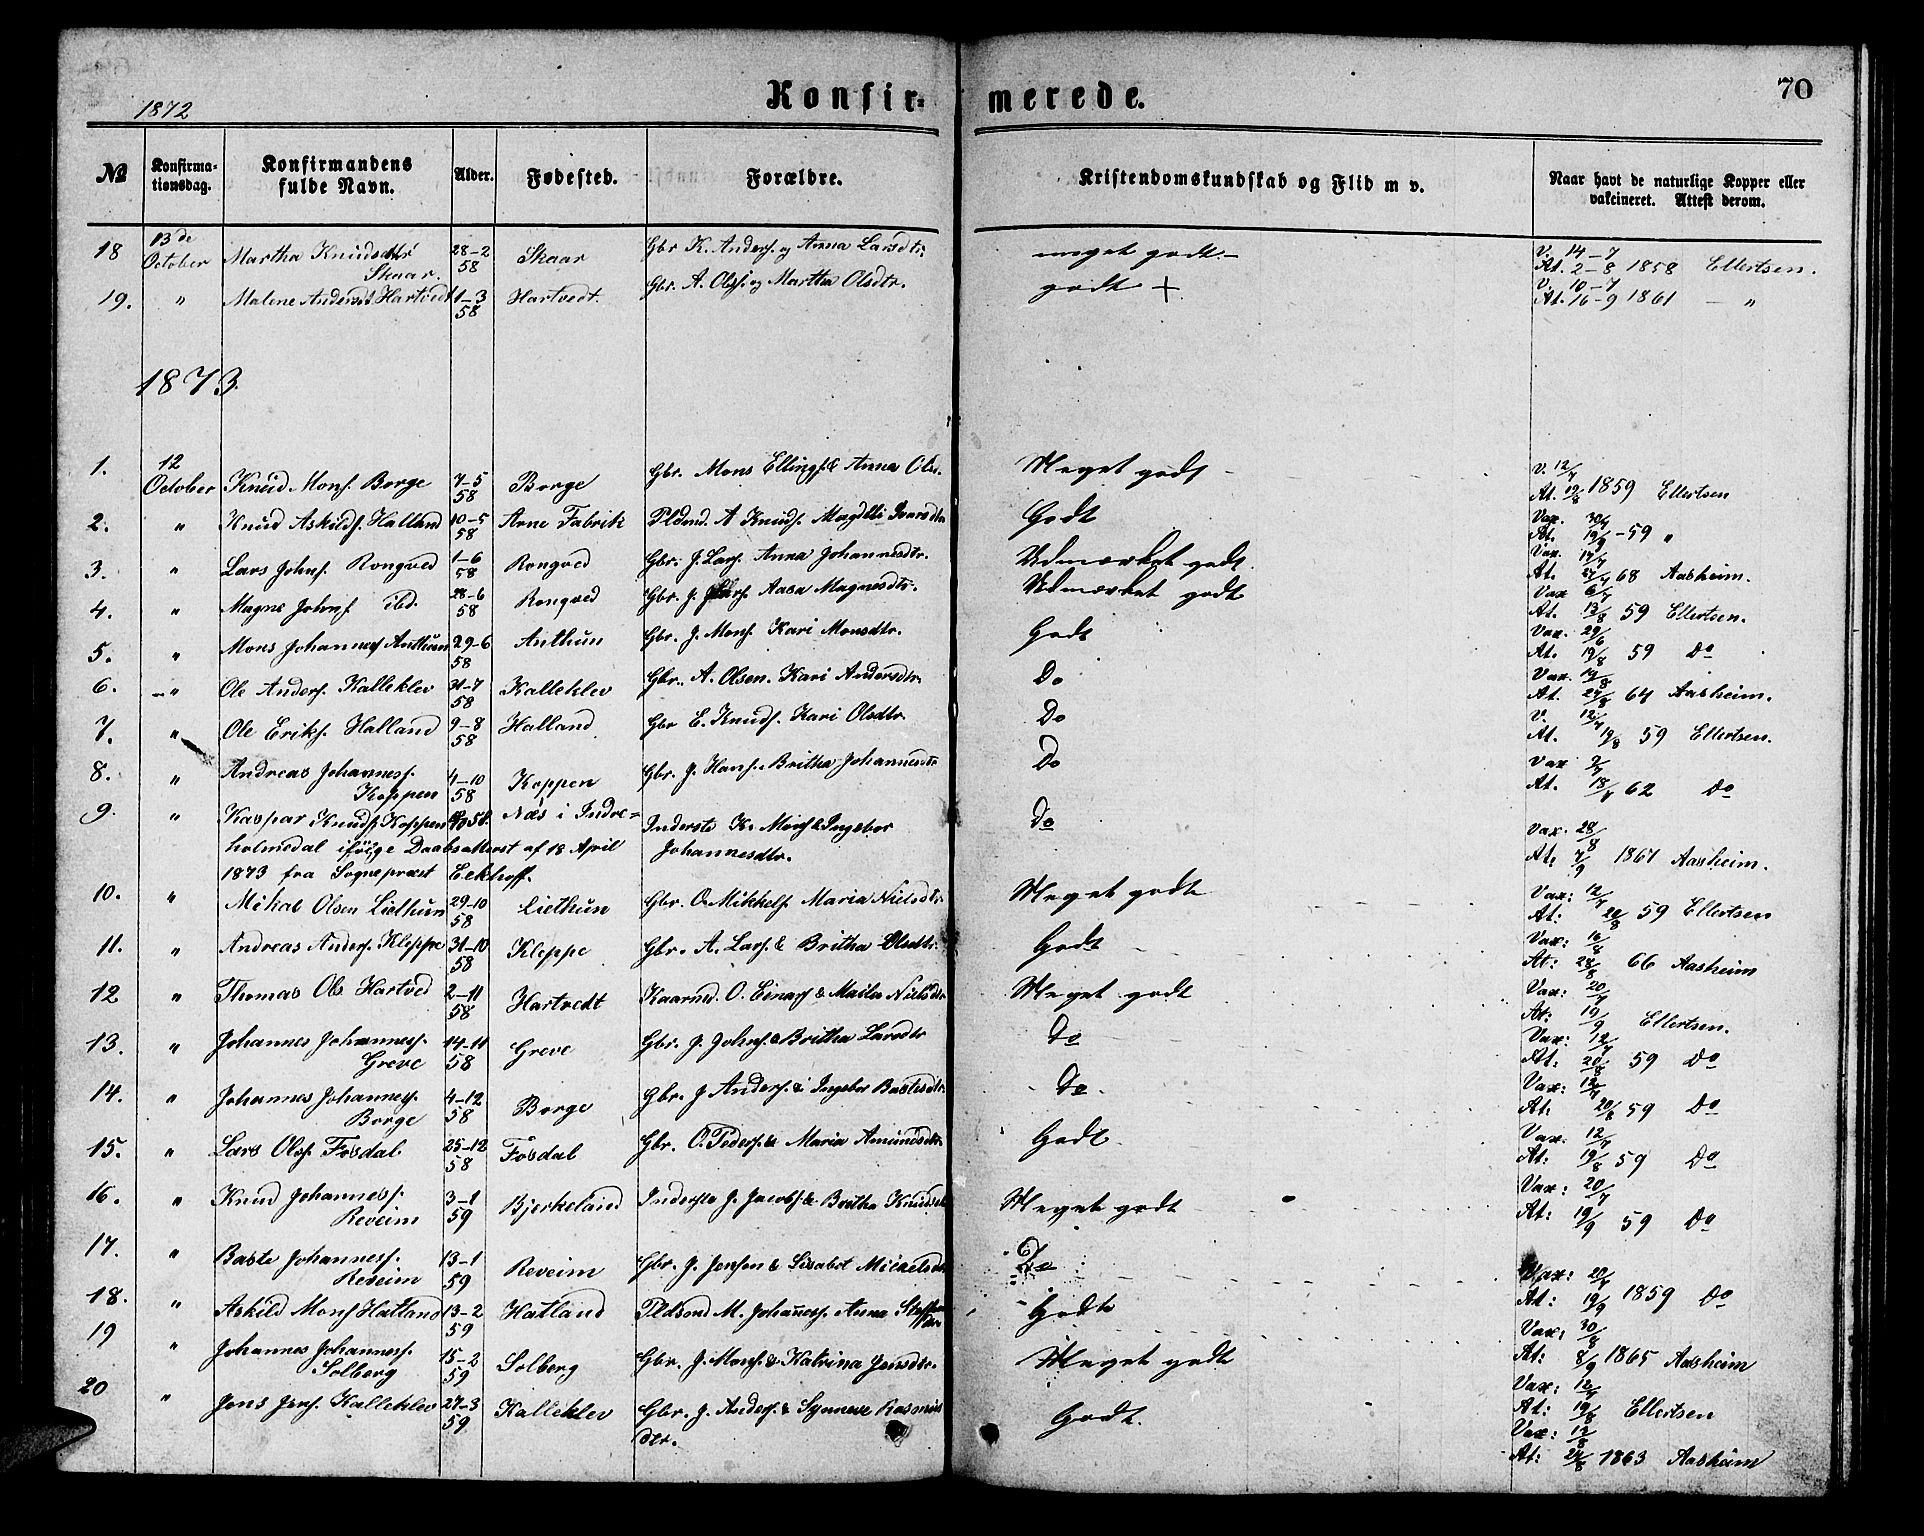 1872
Konfir=
merede.
70
№ Konfirma=tionsdag. Konfirmandens fulde Navn. Alder. Fødested. Forældre. Kristendomskundskab og Flid m v. Naar havt de naturlige Kopper eller vakcineret. Attest derom.
18 13de October Martha Knudsdtr Skaar. 28-2 58 Skaar Gbr K. Anders. og Anna Larsdtr: meget godt.- V. 14-7 At. 2-8 1858 Ellertsen.
19. " Malene Andersdt Hartvedt 1-3 58 Hartvedt. Gbr. A. Ols. og Martha Olsdtr. godt + V. 10-7 At. 16-9 1861 - "
1873.
1. 12 October Knud Mons. Borge 7-5 58 Borge Gbr. Mons Ellings. & Anna Ols. Meget godt - V. 12/7 At. 19/8 1859 Ellertsen
2. " Knud Askilds. Halland 10-5 58 Arne Fabrik Pldsmd. A Knuds. Magdli Ivarsdtr Godt Vax. 30/4 At. 19/9 -59 "
3. " Lars Johns. Rongved 1-6 58 Rongved Gbr. J. Lars. Anna Johannesdtr. Udmærket godt. Vax. 17/7 At. 27/7 68 Aasheim.
4. " Magne Johns. ibd. 28-6 58 Rongved Gbr. J. Lars. Aasa Magnesdtr. Udmærket godt Vax 6/7 At. 13/8 59 Ellertsen.
5. " Mons Johannes Anthun 29-6 58 Anthun Gbr. J. Mons. Kari Monsdtr. Godt Vax. 29/6 At. 19/8 59 Do
6. " Ole Anders. Kalleklev 31-7 58 Kalleklev Gbr. A. Olsen. Kari Andersdtr. Do Vax. 19/8 At. 27/8 64 Aasheim.
7. " Ole Eriks. Halland 9-8 58 Halland Gbr E. Knuds. Kari Olsdtr. Do V. 12/7 At. 19/8 59 Ellertsen.
8. " Andreas Johannes. Koppen 4-10 58 Koppen Gbr. J. Hans. Britha Johannesdtr Do Vax 2/7 At. 18/8 62 Do
9. " Kaspar Knuds. Koppen 58. Næs i Indre= Inderste K. Mons & Ingebor Do Vax. 28/8
holmedal ifölge Daabsattest af 18 April Johannesdtr. At. 7/9 1867 Aasheim.
1873 fra Sognepræst Eckhoff.
10. " Mikas Olsen Liethun 29-10 58 Liethun Gbr. O. Mikkels. Maria Nielsdtr Meget godt Vax: 12/7 At: 20/8 59 Ellertsen
11. " Andreas Anders. Kleppe 31-10 58 Kleppe Gbr. A. Lars. & Britha Olsdtr. Godt Vax: 16/8 At: 28/8 66 Aasheim
12 " Thomas Ols. Hartved 2-11 58 Hartvedt Kaarmd. O. Einars. & Maila Nielsdtr Meget godt Vax: 20/7 At: 19/9 Ellertsen.
13. " Johannes Johannes. Greve 14-11 58 Greve Gbr. J. Johns. & Britha Larsdtr Do Vax: 12/7 At: 20/8 59 Do
14. " Johannes Johannes. Borge 4-12 58 Borge Gbr. J Anders. & Ingebor Bastesdtr Do. Vax: 12/7 At: 20/8 59 Do
15. " Lars Ols. Fosdal 25-12 58 Fosdal Gbr. O. Peders. & Maria Amundsdtr. Godt Vax: 12/7 At: 19/8 59 Do
16. " Knud Johannes. Reveim 3-1 59 Bjerkeland Inderste J. Jacobs. & Britha Knudsdtr Meget godt Vax: 20/7 At: 19/9 59 Do
17. " Baste Johannes. Reveim 13-1 59 Reveim Gbr. J. Jensen & Lisabet Mickelsdtr Do Vax: 20/7 At: 19/9 1859 Do
18. " Askild Mons Hatland 13-2 59 Hatland Pldsmd M. Johannes. Anna Steffensdtr Godt Vax: 30/8 At: 8/9 1865 Aasheim
19 " Johannes Johannes. Solberg 15-2 59 Solberg Gbr. J. Mons. & Katrina Jensdtr. Meget godt Vax: 12/7 At: 19/8 Ellertsen
20 " Jens Jens. Kalleklev 27-3 59 Kalleklev Gbr. J. Anders. & Synneve Rasmus dtr. Godt. Vax: 12/8 At: 27/8 1863 Aasheim